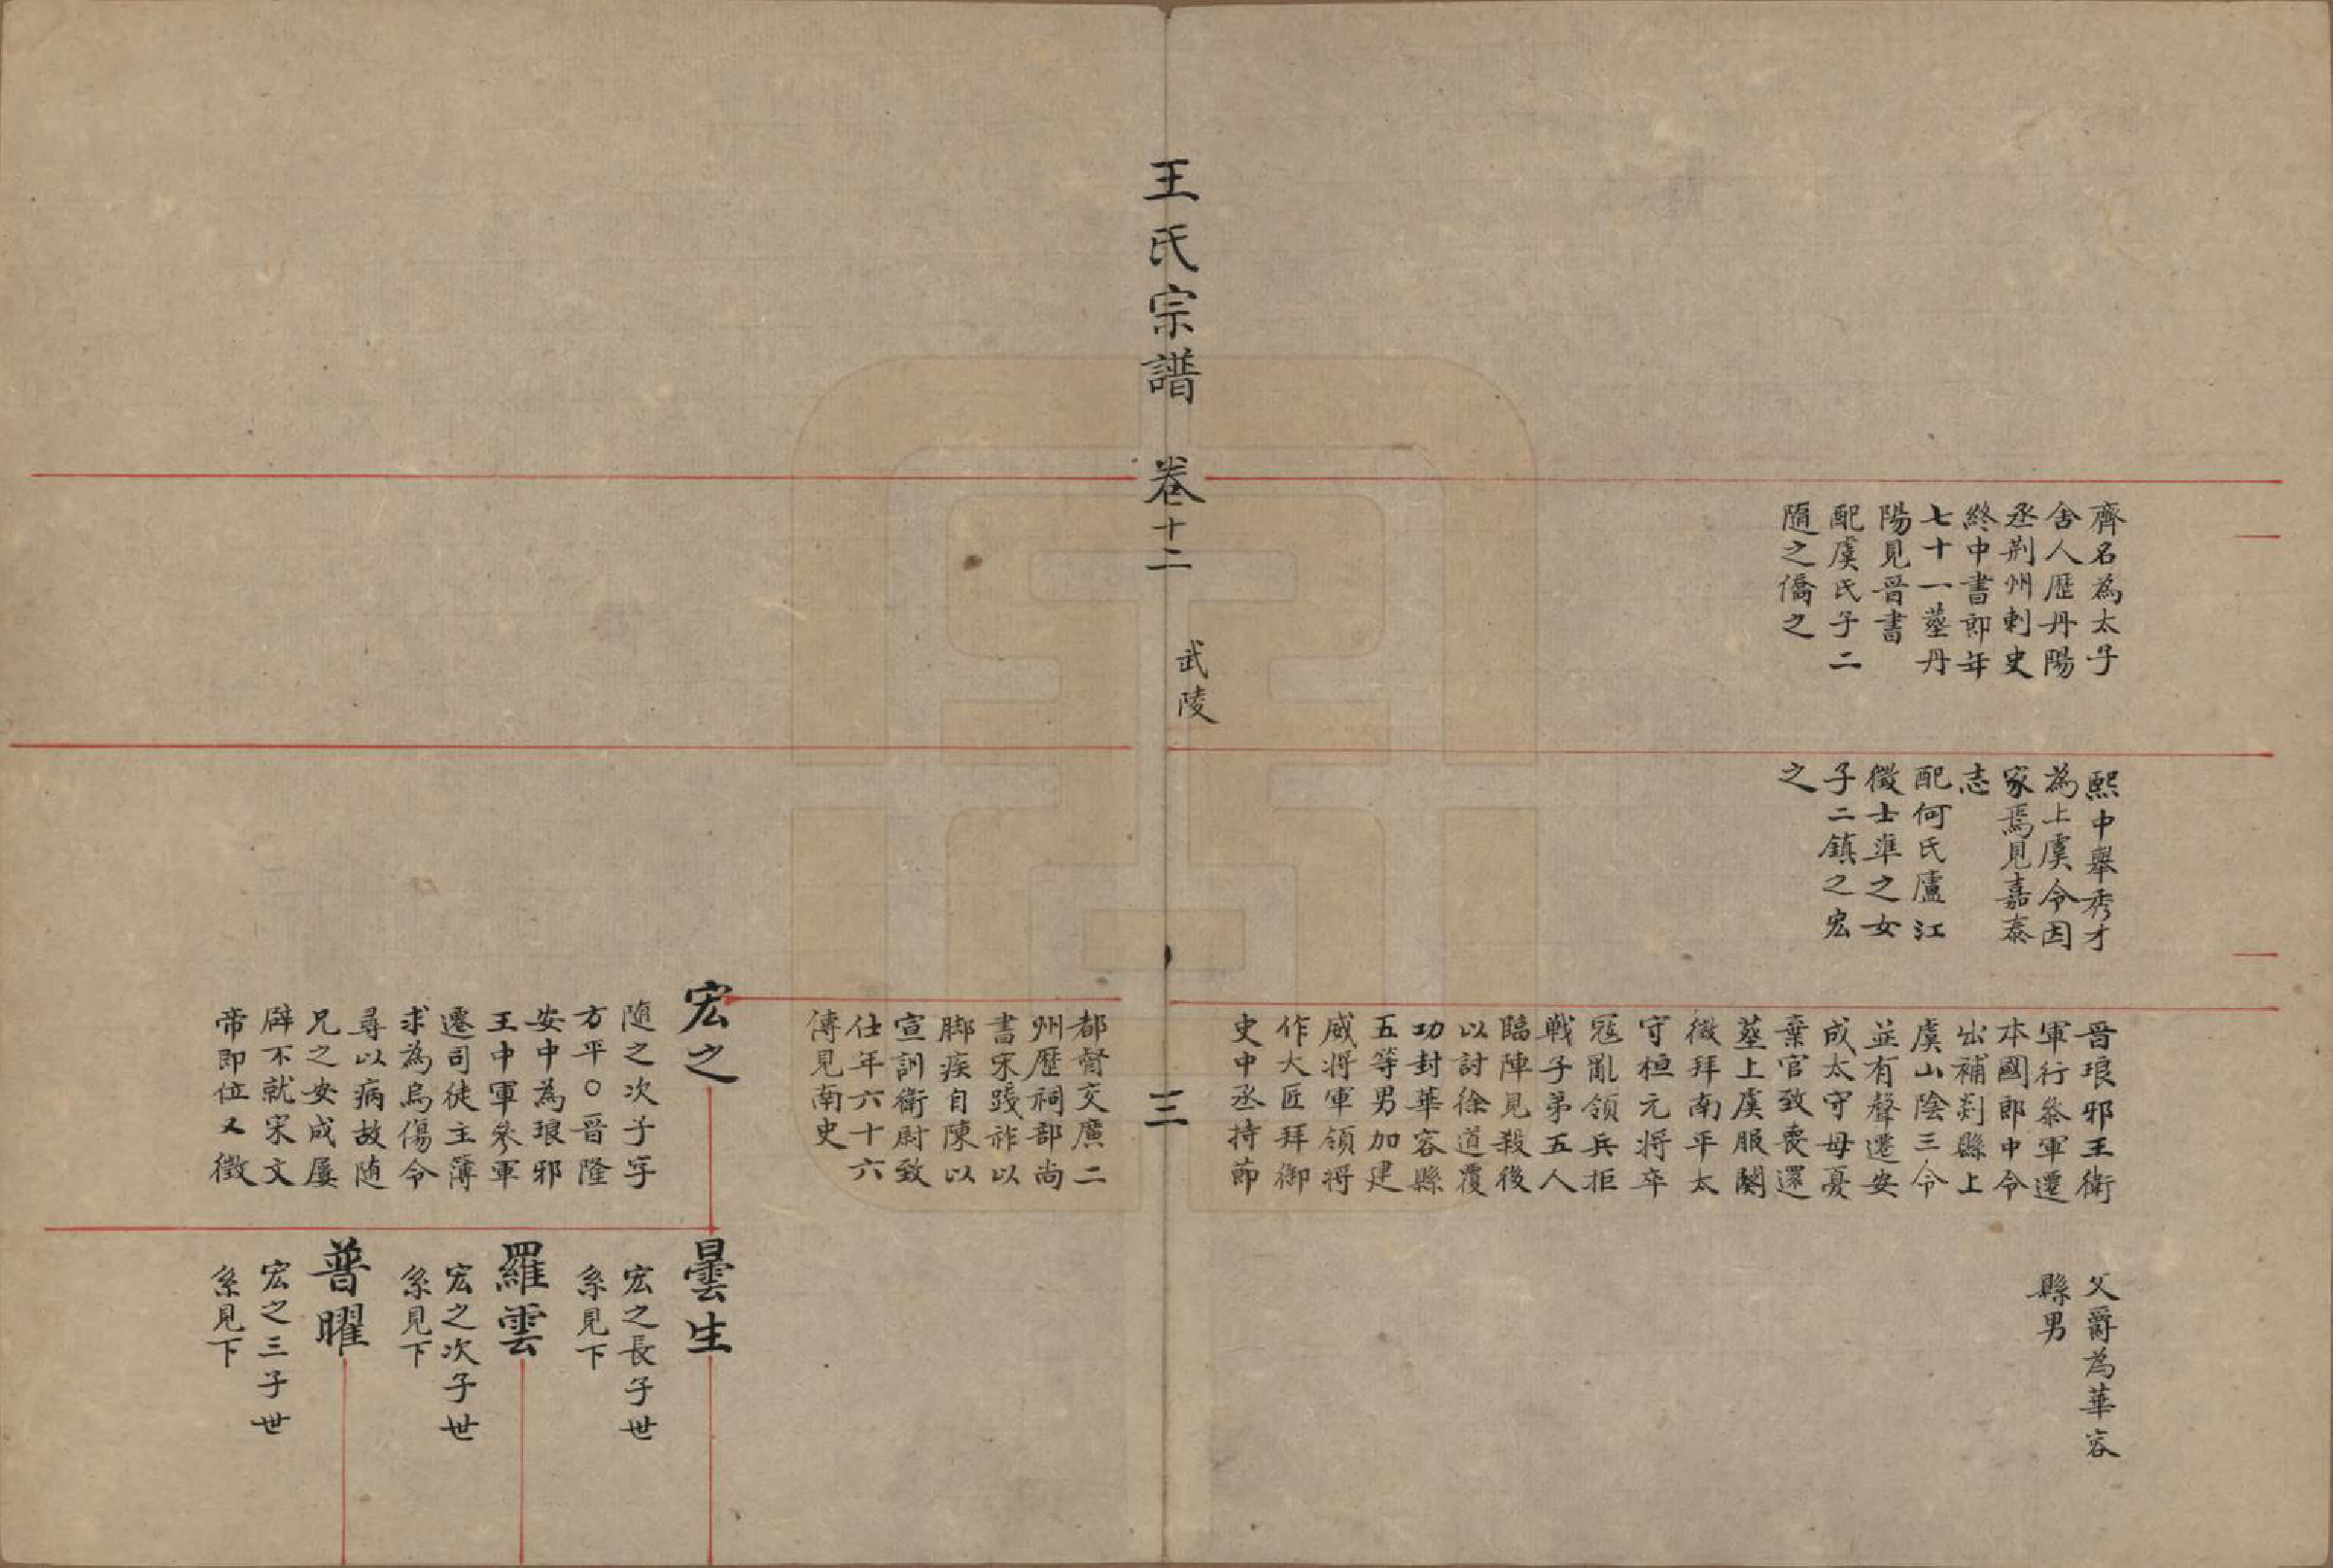 齊名為太子
舍人歷丹陽
丞荆州刺史
終中書郎年
七十一塟丹
陽見晋書
配虞氏子二
隨之僑之
熙中舉秀才
為上虞令因
家焉見嘉泰
志
配何氏廬江
徵士準之女
子二鎮之宏
之
晋琅邪王衛
軍行叅軍遷
本國郎中令
出補剡縣上
虞山陰三令
並有聲遷安
成太守母憂
棄官致喪還
塟上虞服闋
徵拜南平太
守桓元将卒
寇亂領兵拒
戦子弟五人
臨陣見殺後
以討徐道覆
功封華容縣
五等男加建
威将軍領将
作大匠拜御
史中丞持節
父爵為華容
縣男
王氏宗譜
卷十二
武陵
三
都督交廣二
州歷祠部尚
書宋踐祚以
脚疾自陳以
宣訓衛尉致
仕年六十六
傳見南史
宏之
随之次子字
方平〇晋隆
安中為琅邪
王中軍參軍
遷司徒主簿
求為烏傷令
尋以病故随
兄之安成屢
辟不就宋文
帝即位又徵
曇生
宏之長子世
系見下
羅雲
宏之次子世
系見下
普曜
宏之三子世
系見下